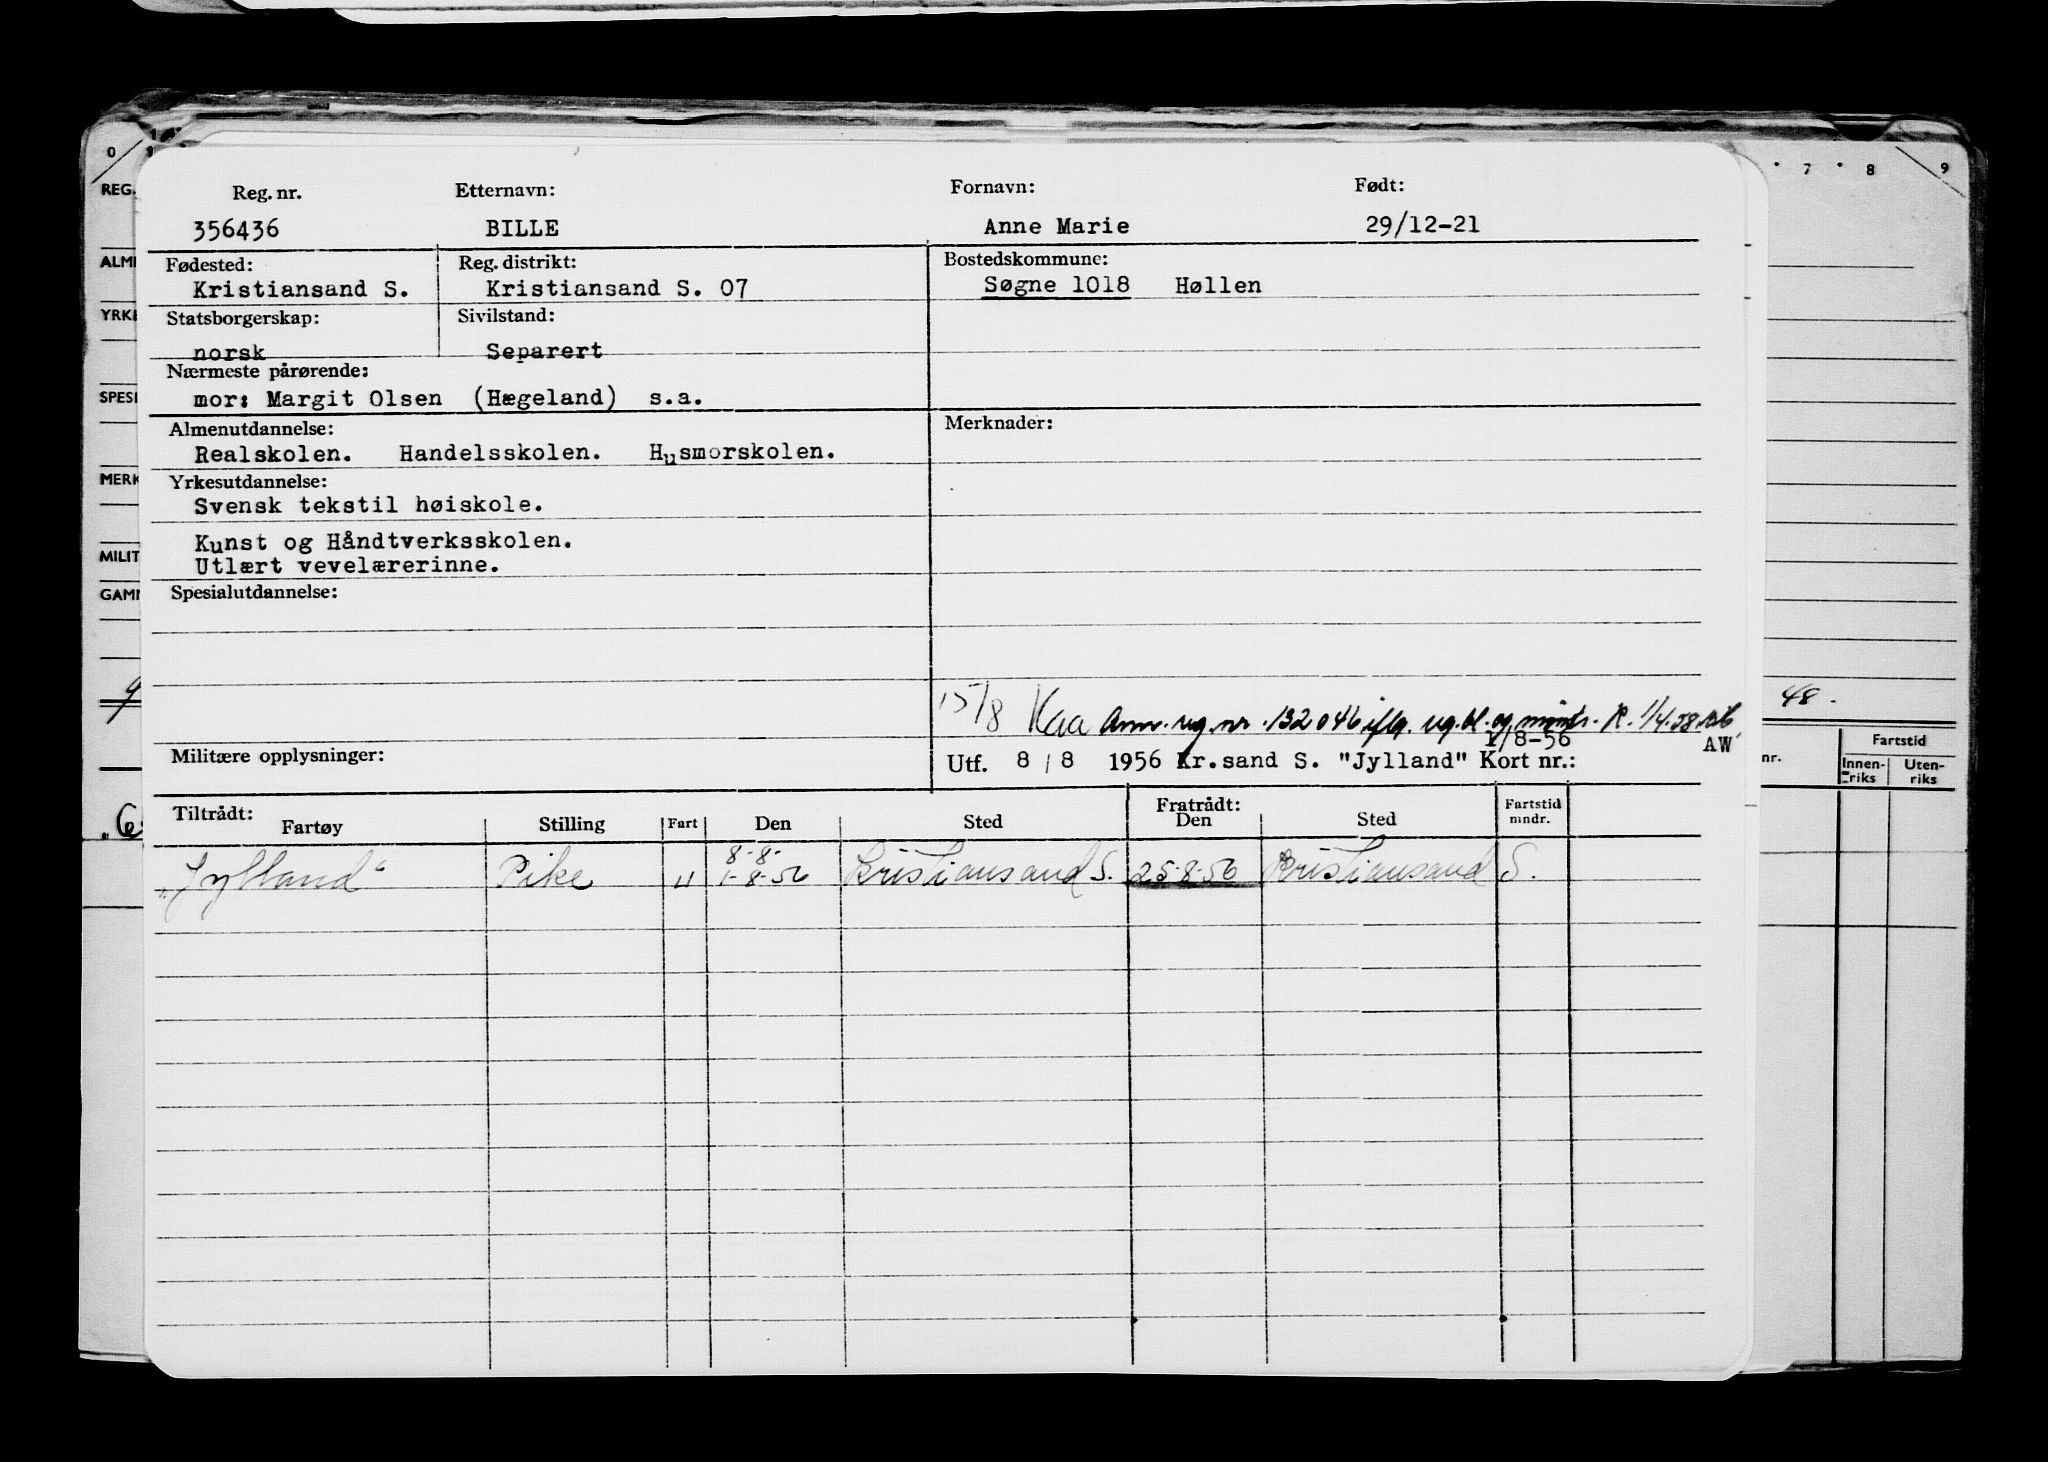 0 1 7 8 9
REG.
Reg. nr. Etternavn: Fornavn: Født:
356436 BILLE Anne Marie 29/12-21
Fødested: Reg. distrikt: Bostedskommune:
Kristiansand S. Kristiansand S. 07 Søgne 1018 Høllen
Statsborgerskap: Sivilstand:
norsk Separert
Nærmeste pårørende:
mor: Margit Olsen (Hægeland) s.a.
Almenutdannelse: Merknader:
Realskolen. Handelsskolen. Husmorskolen.
Yrkesutdannelse:
Svensk tekstil høiskole.
Kunst og Håndtverksskolen.
Utlært vevelærerinne.
Spesialutdannelse:
15/8 Kaa Ann. reg. nr. 132046 iflg. rg. bl. og mønstr. R. 1/4.58
1/8-56 AW
Militære opplysninger: Utf. 8/8 1956 Kr.sand S. "Jylland" Kort nr.:
Tiltrådt: Fratrådt:
Fartøy Stilling Fart Den Sted Den Sted Fartstid mndr.
8-8-
"Jylland" Pike U 1-8-56 Kristiansand S. 25-8-56 Kristiansand S.
ALM
YRKE
SPESI
MERK
MILIT
GAMM
48.
nr. Fartstid
Innen-riks Uten-riks